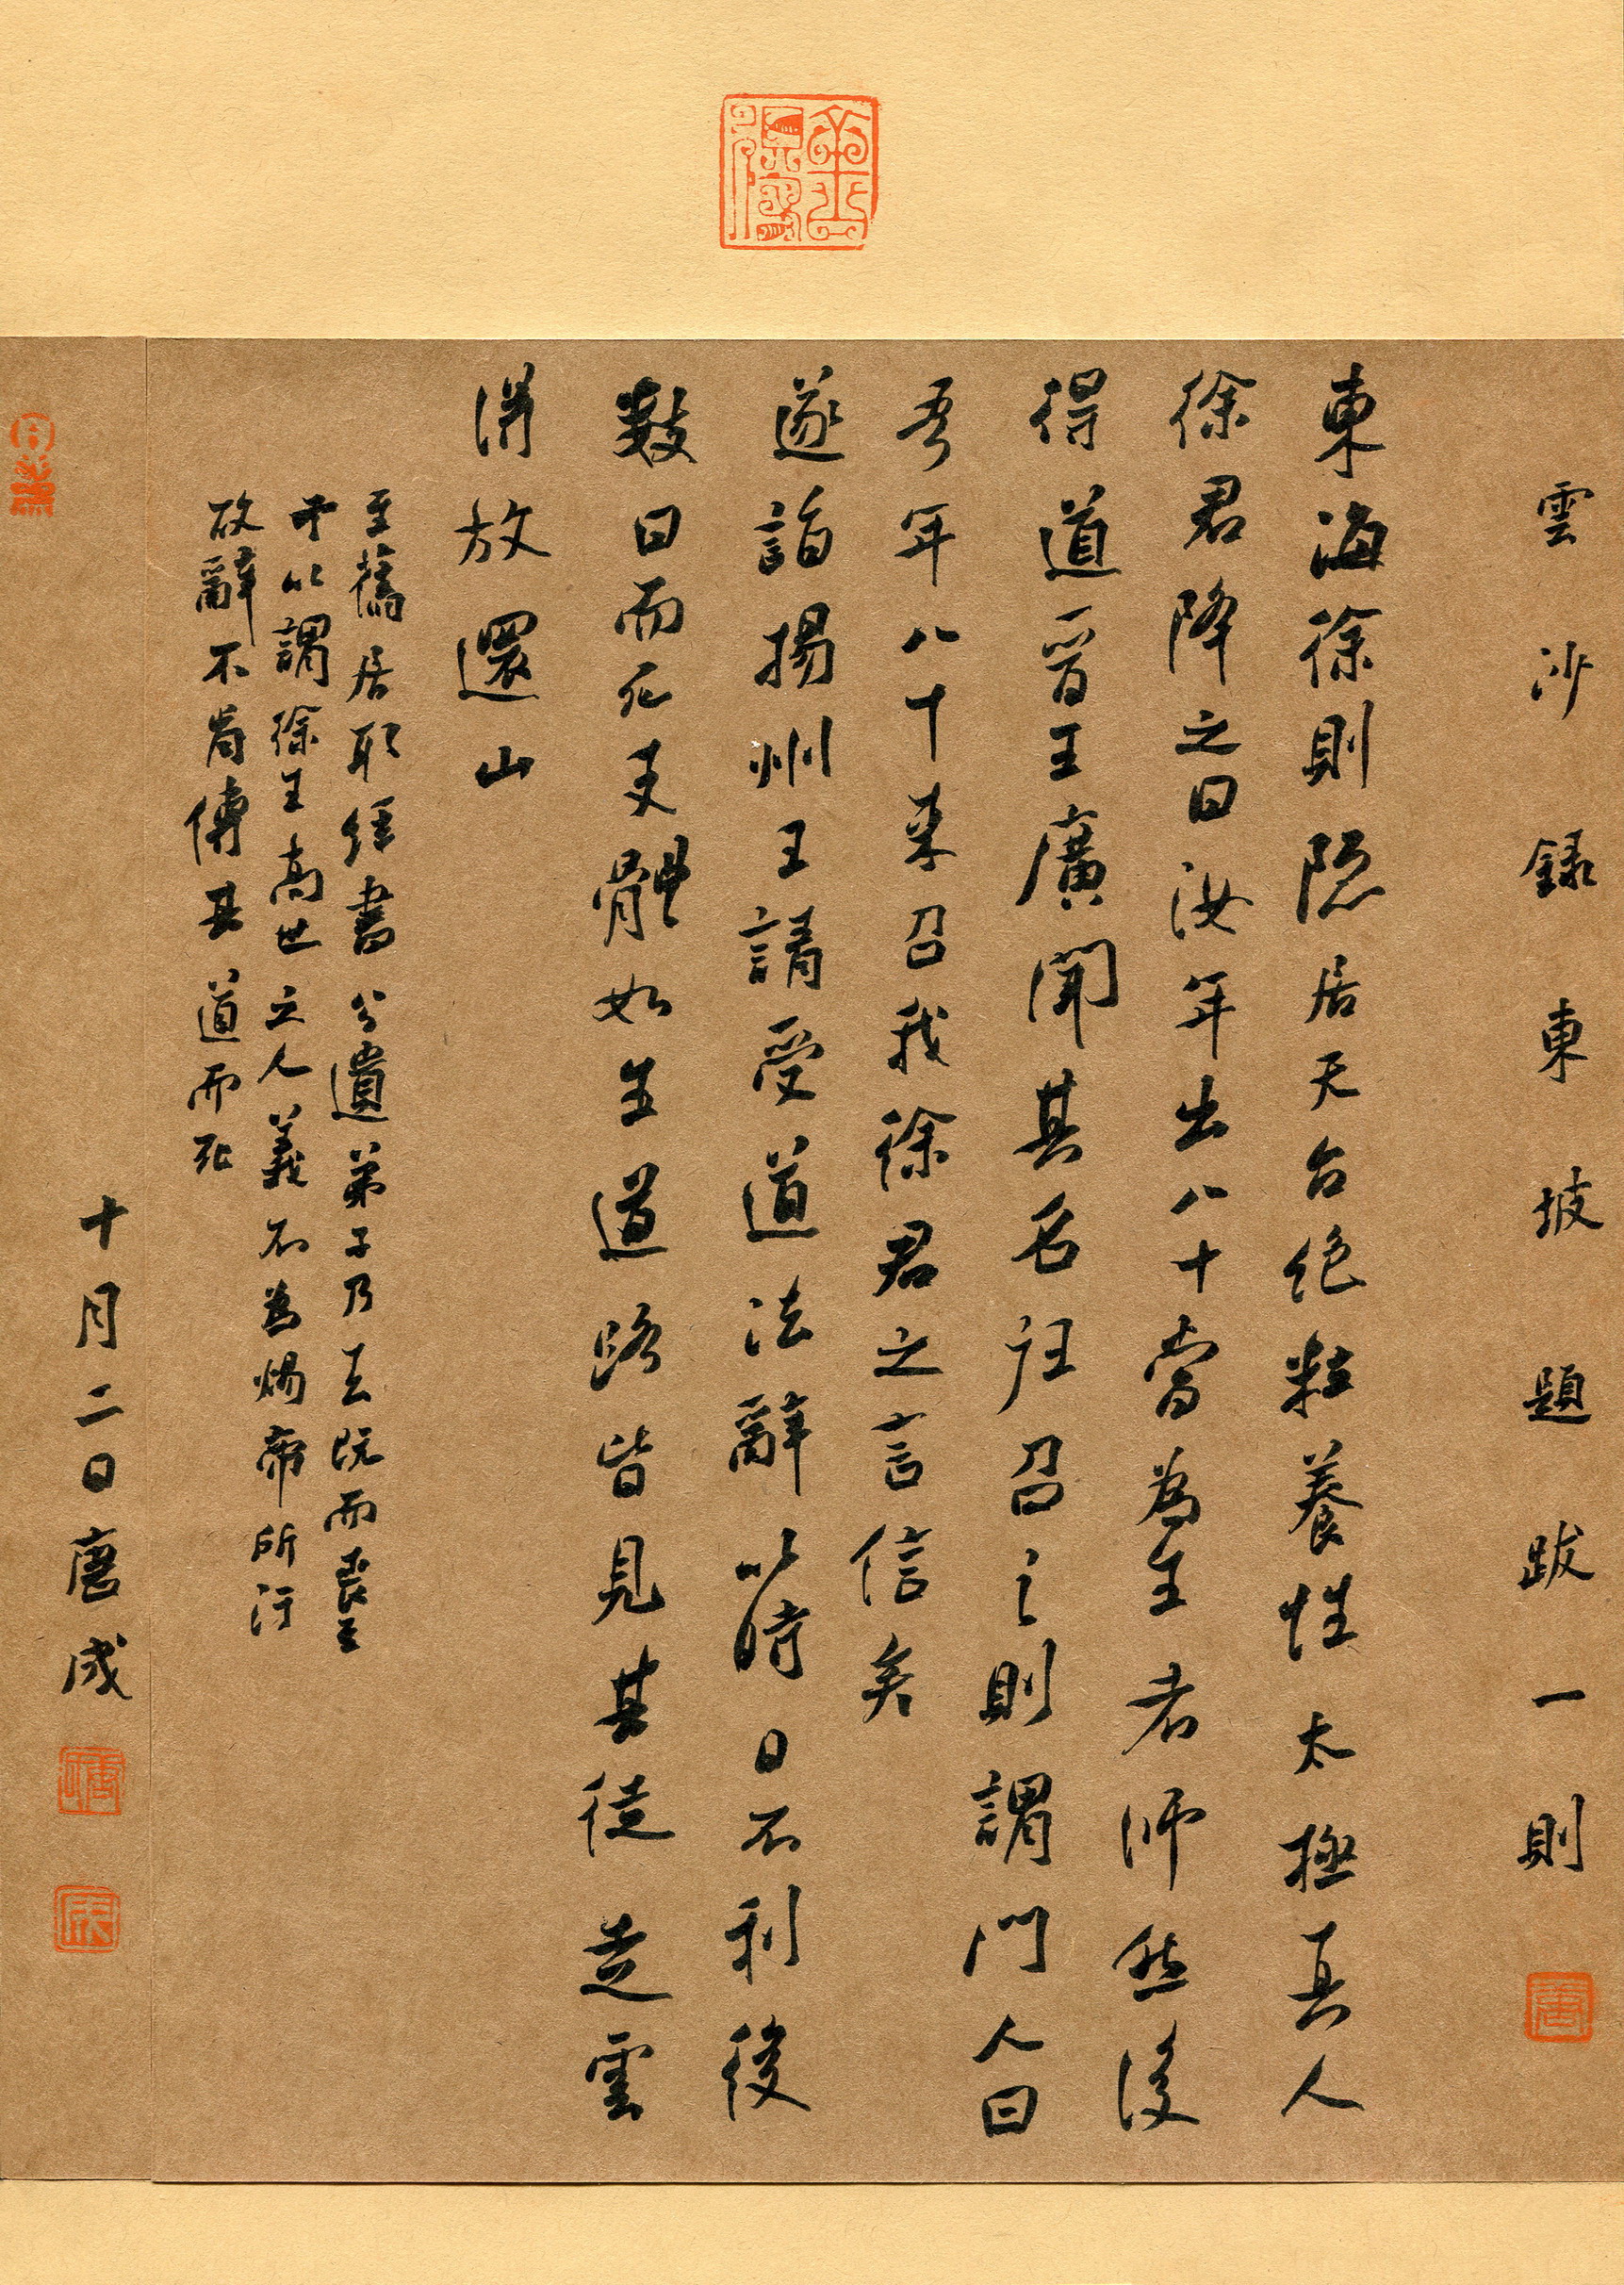 雲沙録東坡題跋一則
東海徐則隱居天台絶粒養性太極真人
徐君降之曰汝年出八十當為王者師然後
得道晉王廣聞其名往召之則謂門人曰
吾年八十來召我徐君之言信矣
遂詣揚州王請受道法辭以時日不利後
數日而死支體如生道路皆見其徒走雲
得放還山
至舊居取經書分遺弟子乃去既而喪至
予以謂徐生高世之人義不為煬帝所污
故辭不肯傳其道而死
十月二日唐成